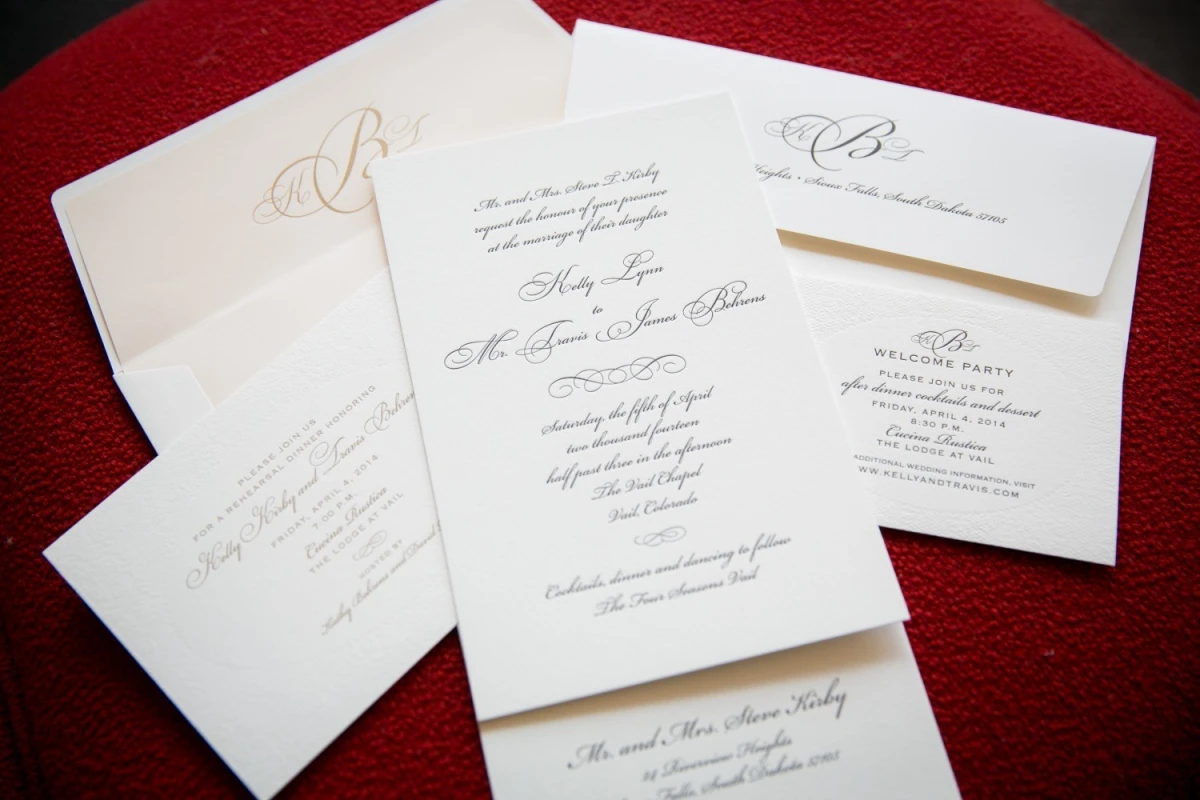 K B T
K B T
Heights • Sioux Falls, South Dakota 57105
Mr. and Mrs. Steve T. Kirby
request the honour of your presence
at the marriage of their daughter
Kelly Lynn
to
Mr. Travis James Behrens
Saturday, the fifth of April
two thousand fourteen
half past three in the afternoon
The Vail Chapel
Vail, Colorado
Cocktails, dinner and dancing to follow
The Four Seasons Vail
PLEASE JOIN US
FOR A REHEARSAL DINNER HONORING
Kelly Kirby and Travis Behrens
FRIDAY, APRIL 4, 2014
7:00 P.M.
Cucina Rustica
THE LODGE AT VAIL
HOSTED BY
Behrens and
K B T
WELCOME PARTY
PLEASE JOIN US FOR
after dinner cocktails and dessert
FRIDAY, APRIL 4, 2014
8:30 P.M.
Cucina Rustica
THE LODGE AT VAIL
ADDITIONAL WEDDING INFORMATION, VISIT
WWW.KELLYANDTRAVIS.COM
Mr. and Mrs. Steve Kirby
24 Riverview Heights
Falls, South Dakota 57105